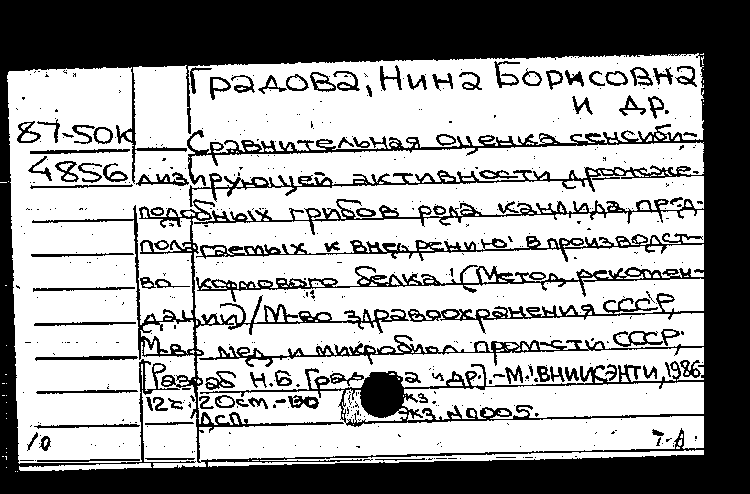 Градова, Нина Борисовна
и др.
87-50К
4856
Сравнительная оценка сенсиби-
лизирующей активности дрожже-
подобных грибов рода кандида, пред-
полагаемых к внедрению в производст-
во кормового белка: (Метод. рекомен-
дации) / М-во здравоохранения СССР,
М-во мед. и микробиол. пром-сти СССР;
[Разраб. Н.Б. Градова и др]. - М.: ВНИИСЭНТИ, 1986.
12с.; 20см. - 130 экз.
ДСП. Экз. N 0005.
10
Т-А.